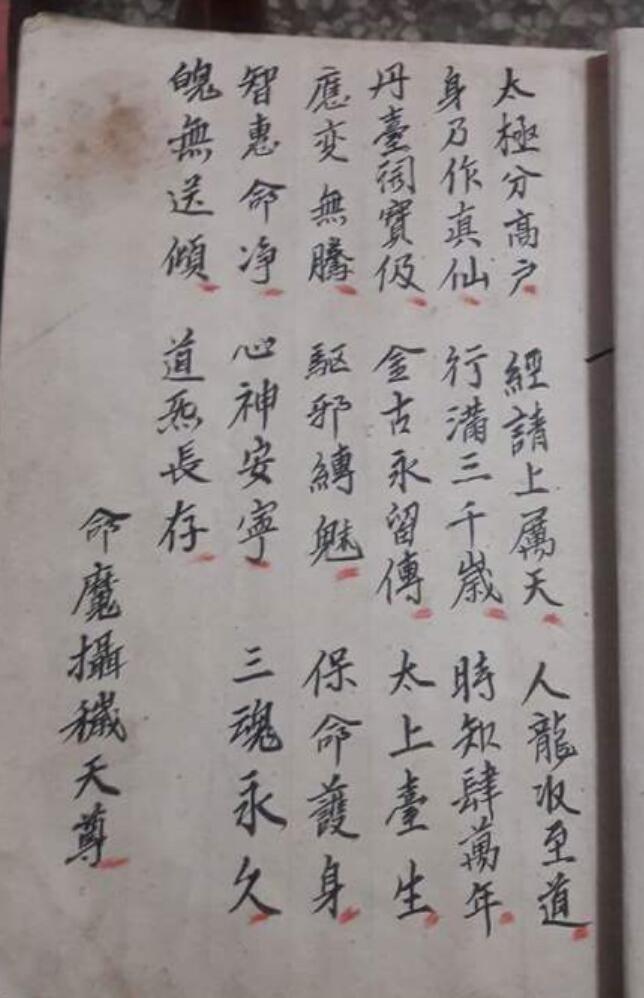 太極分高戶 經請上属天 人龍収至道
身乃作真仙 行滿三千歲 時知肆萬年
丹臺詞寶伋 金古永留傳 太上臺生
應变無騰 驅邪縛魅 保命護身
智惠命净 心神安寧 三魂永久
魄無送傾 道炁長存
命魔攝穢天尊